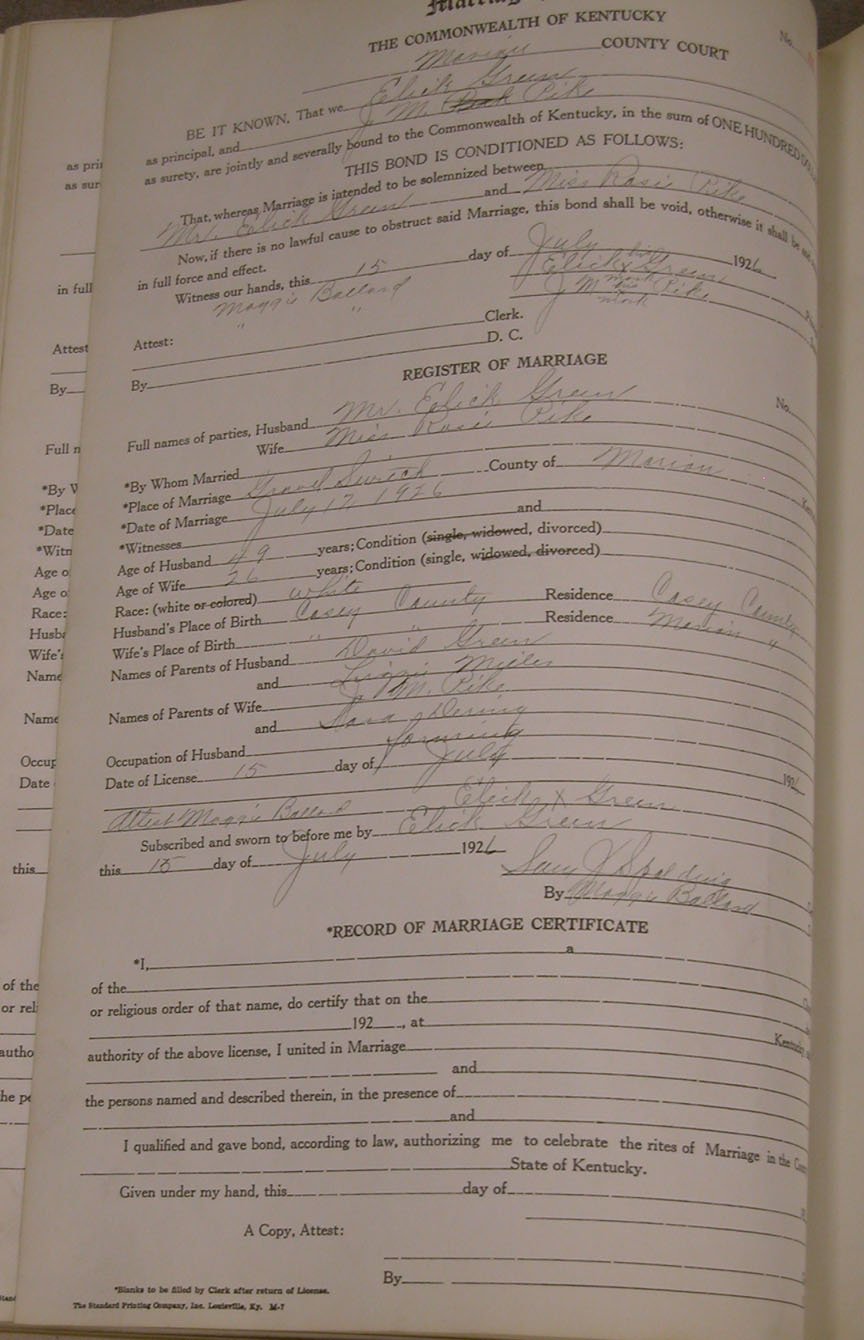 THE COMMONWEALTH OF KENTUCKY
No.
Marion COUNTY COURT
BE IT KNOWN, That we Elick Green
as principal, and J. M. Pike
as surety, are jointly and severally bound to the Commonwealth of Kentucky, in the sum of ONE HUNDRED
THIS BOND IS CONDITIONED AS FOLLOWS:
That, whereas Marriage is intended to be solemnized between
Mr. Elick Green and Miss Rosie Pike
Now, if there is no lawful cause to obstruct said Marriage, this bond shall be void, otherwise it shall be
in full force and effect.
Witness our hands, this 15 day of July 1926
Maggie Ballard Elick his x mark Green
" " J M his x mark Pike
Attest: Clerk.
By D. C.
REGISTER OF MARRIAGE
No.
Full names of parties, Husband Mr. Elick Green
Wife Miss Rosie Pike
*By Whom Married
*Place of Marriage Gravel Switch County of Marion
*Date of Marriage July 17, 1926
*Witnesses and
Age of Husband 49 years; Condition (single, widowed, divorced)
Age of Wife 26 years; Condition (single, widowed, divorced)
Race: (white or colored) white
Husband's Place of Birth Casey County Residence Casey County
Wife's Place of Birth " " Residence Marion "
Names of Parents of Husband David Green
and Lizzie
Names of Parents of Wife J. M. Pike
and
Occupation of Husband Farming
Date of License 15 day of July 192
Attest Maggie Ballard Elick X Green
Subscribed and sworn to before me by Elick Green
this 15 day of July 1926
Spalding
By Maggie Ballard
*RECORD OF MARRIAGE CERTIFICATE
*I, a
of the
or religious order of that name, do certify that on the
192 , at Kentucky,
authority of the above license, I united in Marriage
and
the persons named and described therein, in the presence of
and
I qualified and gave bond, according to law, authorizing me to celebrate the rites of Marriage in the
State of Kentucky.
Given under my hand, this day of
A Copy, Attest:
By
*Blanks to be filled by Clerk after return of License.
The Standard Printing Company, Inc. Louisville, Ky. M-7